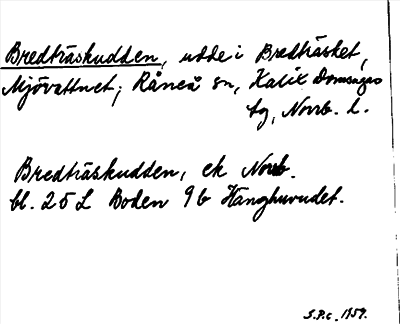 Bredträskudden, udde i Bredträsket,
Mjövattnet; Råneå sn, Kalix Domsagas
tg, Norrb. l.
Bredträskudden, ek Norrb.
bl. 25 L Boden 9b Hanghuvudet.
S.P.c. 1959.